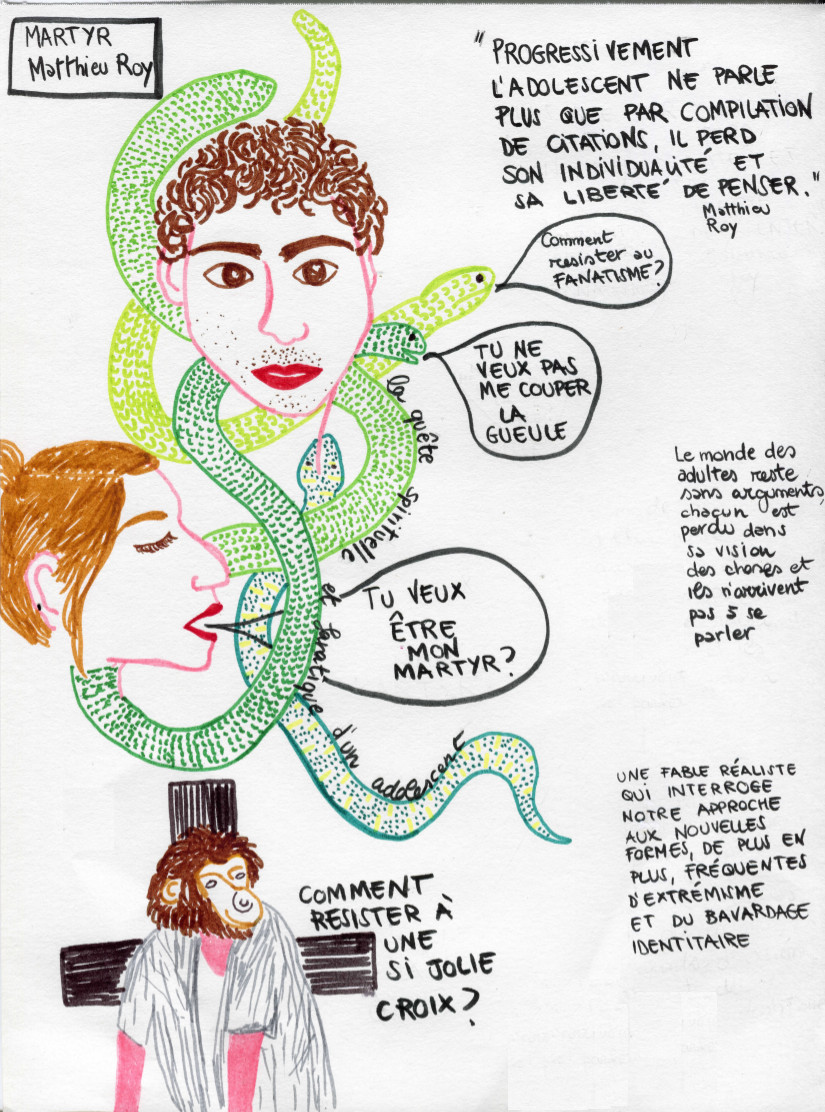 MARTYR
Matthieu Roy
"PROGRESSIVEMENT
L'ADOLESCENT NE PARLE
PLUS QUE PAR COMPILATION
DE CITATIONS, IL PERD
SON INDIVIDUALITÉ ET
SA LIBERTÉ DE PENSER."
Matthieu
Roy
Comment
resister au
FANATISME?
TU NE
VEUX PAS
ME COUPER
LA
GUEULE
la quête spirituelle et fératique d'un adolescent
Le monde des
adultes reste
sans arguments,
chacun est
perdu dans
sa vision
des choses et
ils n'arrivent
pas à se
parler
TU VEUX
ÊTRE
MON
MARTYR?
UNE FABLE RÉALISTE
QUI INTERROGE
NOTRE APPROCHE
AUX NOUVELLES
FORMES, DE PLUS EN
PLUS, FRÉQUENTES
D'EXTRÉMISME
ET DU BAVARDAGE
IDENTITAIRE
COMMENT
RESISTER À
UNE
SI JOLIE
CROIX?